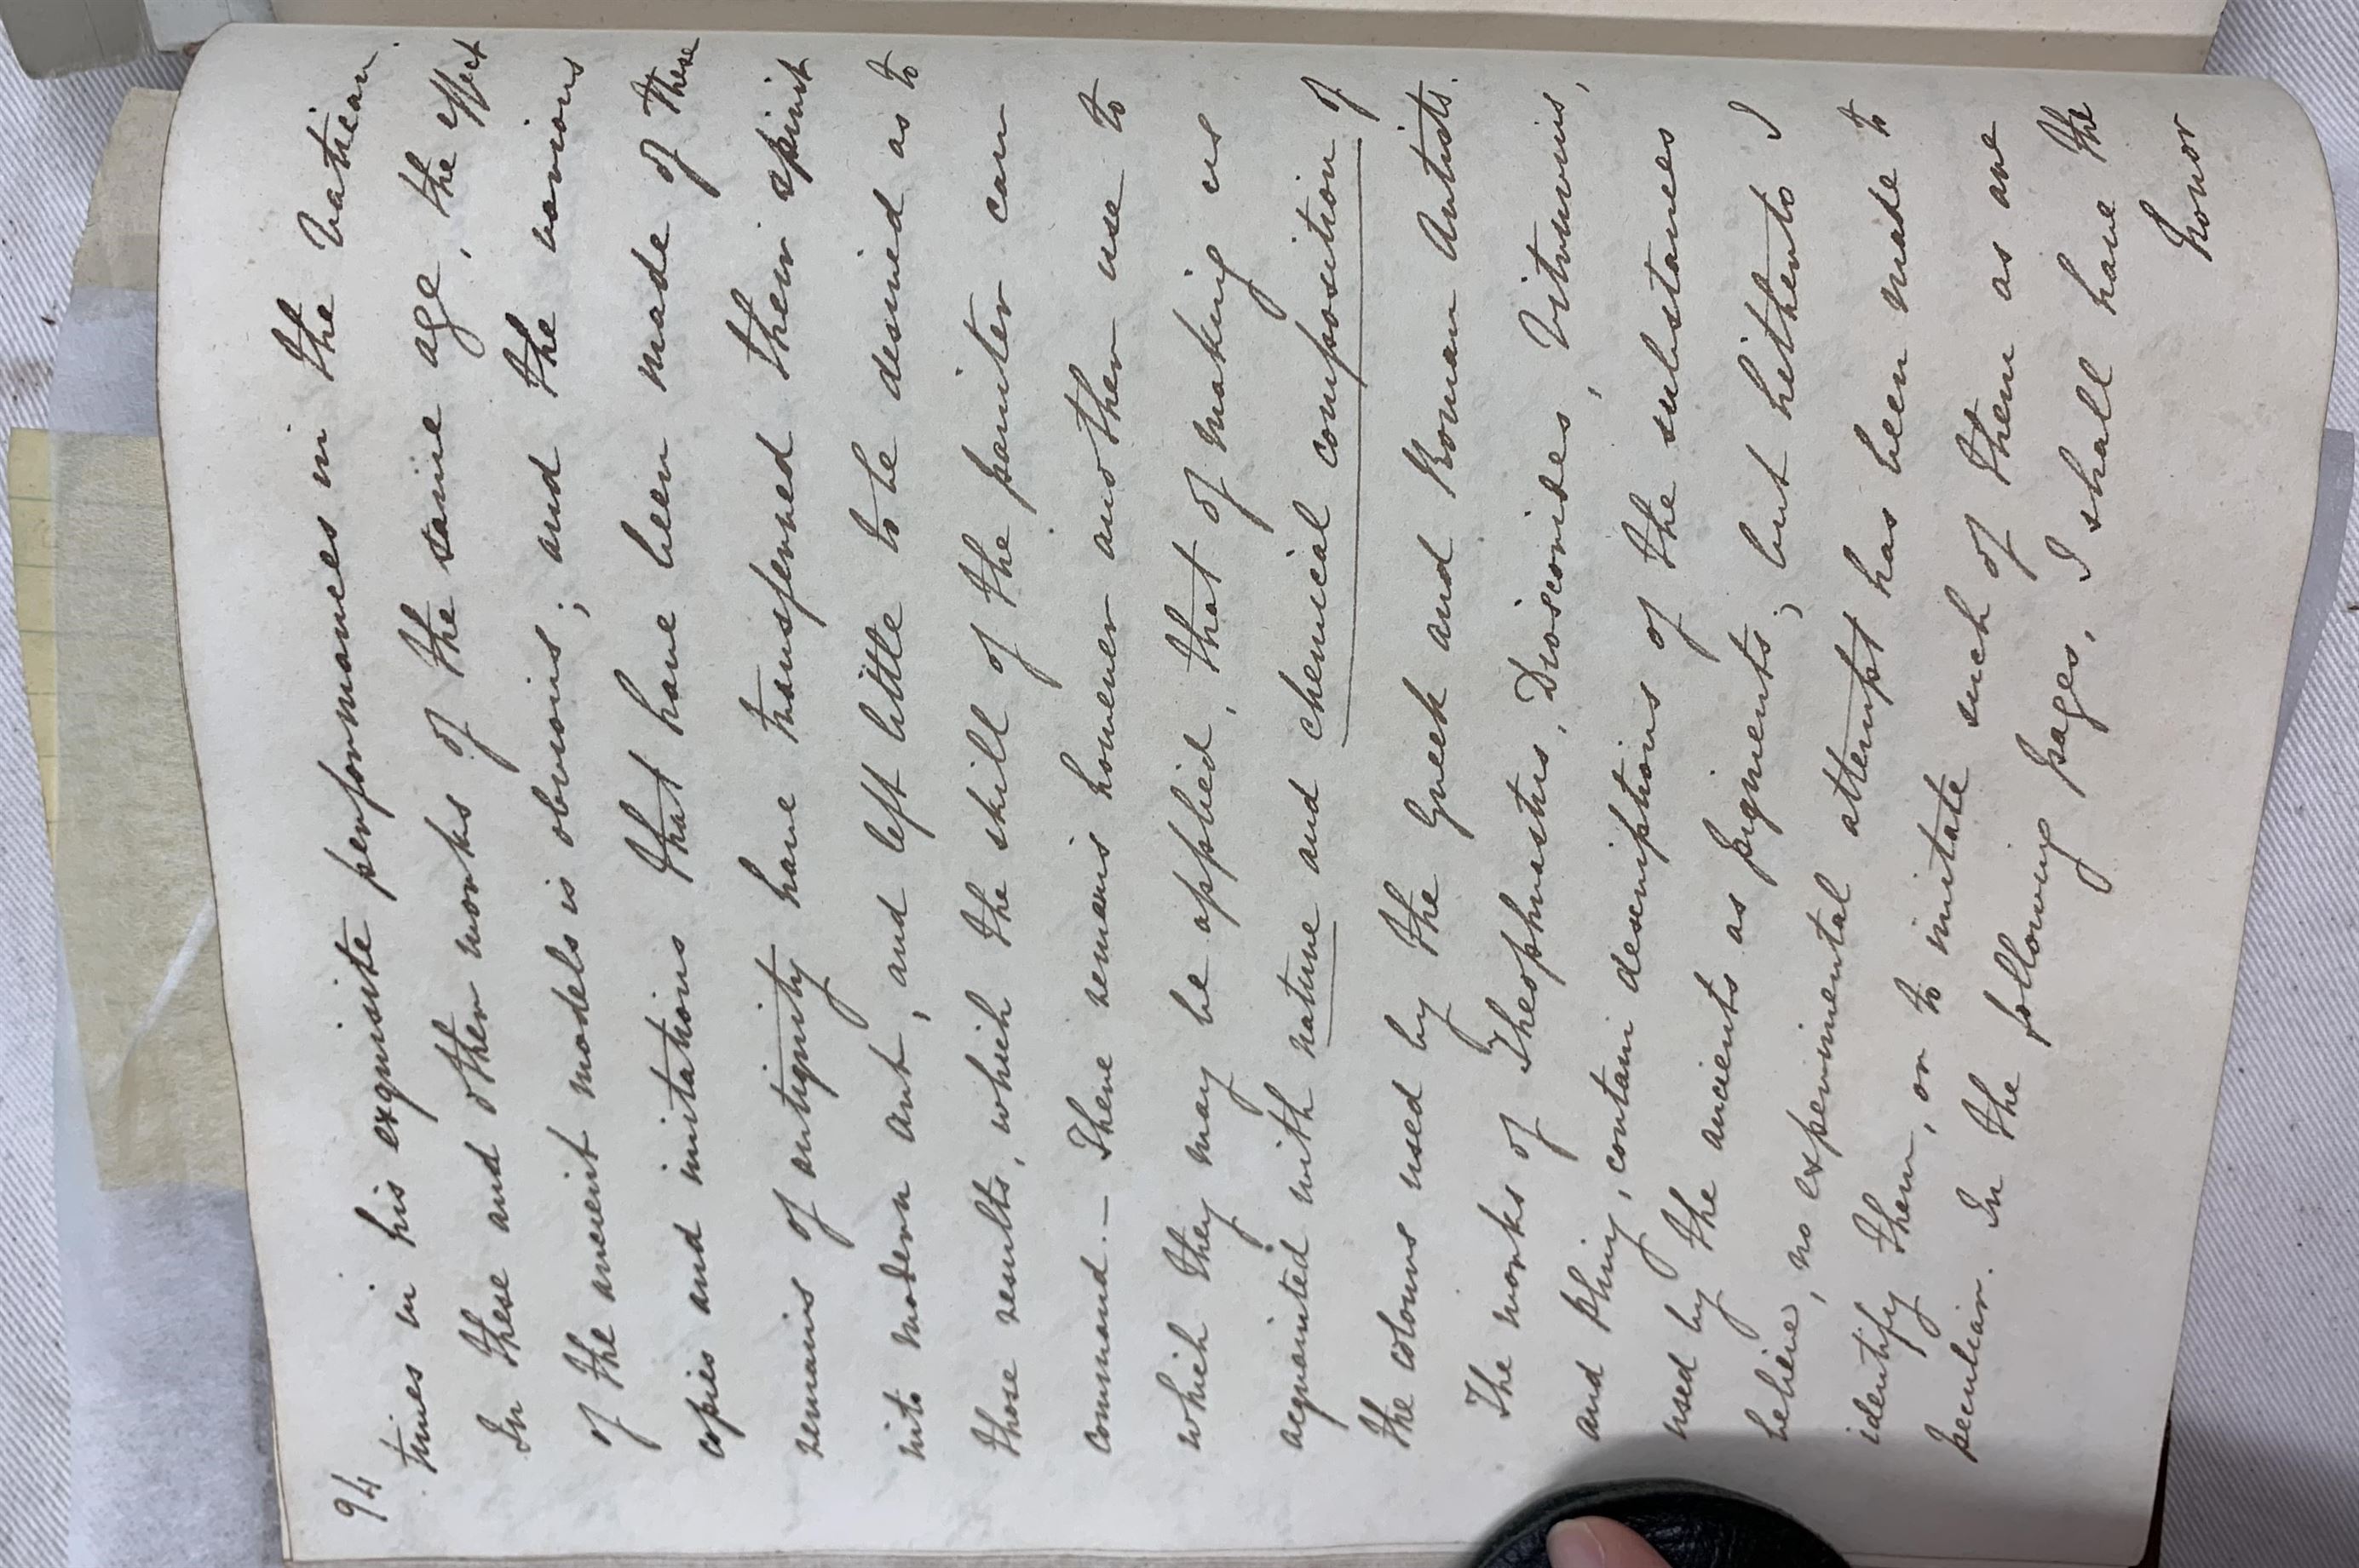 94
times in his exquisite performances in the Vatican.
In these and other works of the same age, the effect
of the ancient models is obvious; and the various
copies and imitations that have been made of these
remains of antiquity have transferred their spirit
into modern art, and left little to be desired as to
those results, which the skill of the painter can
command. — There remains however another use to
which they may be applied, that of making us
acquainted with nature and chemical composition of
the colours used by the Greek and Roman Artists.
The works of Theophrastus, Dioscorides, Vitruvius,
and Pliny, contain descriptions of the substances
used by the ancients as pigments; but hitherto I
believe, no experimental attempt has been made to
identify them, or to imitate such of them as are
peculiar. In the following pages, I shall have the
honor